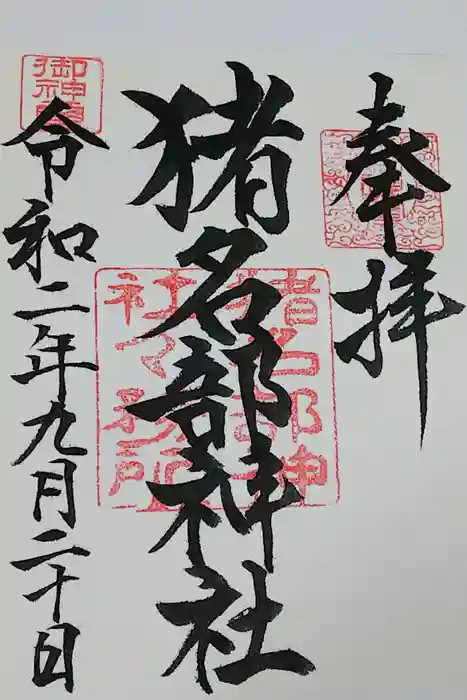 奉拝
猪名部神社
猪名部神
社々務所
令和二年九月二十日